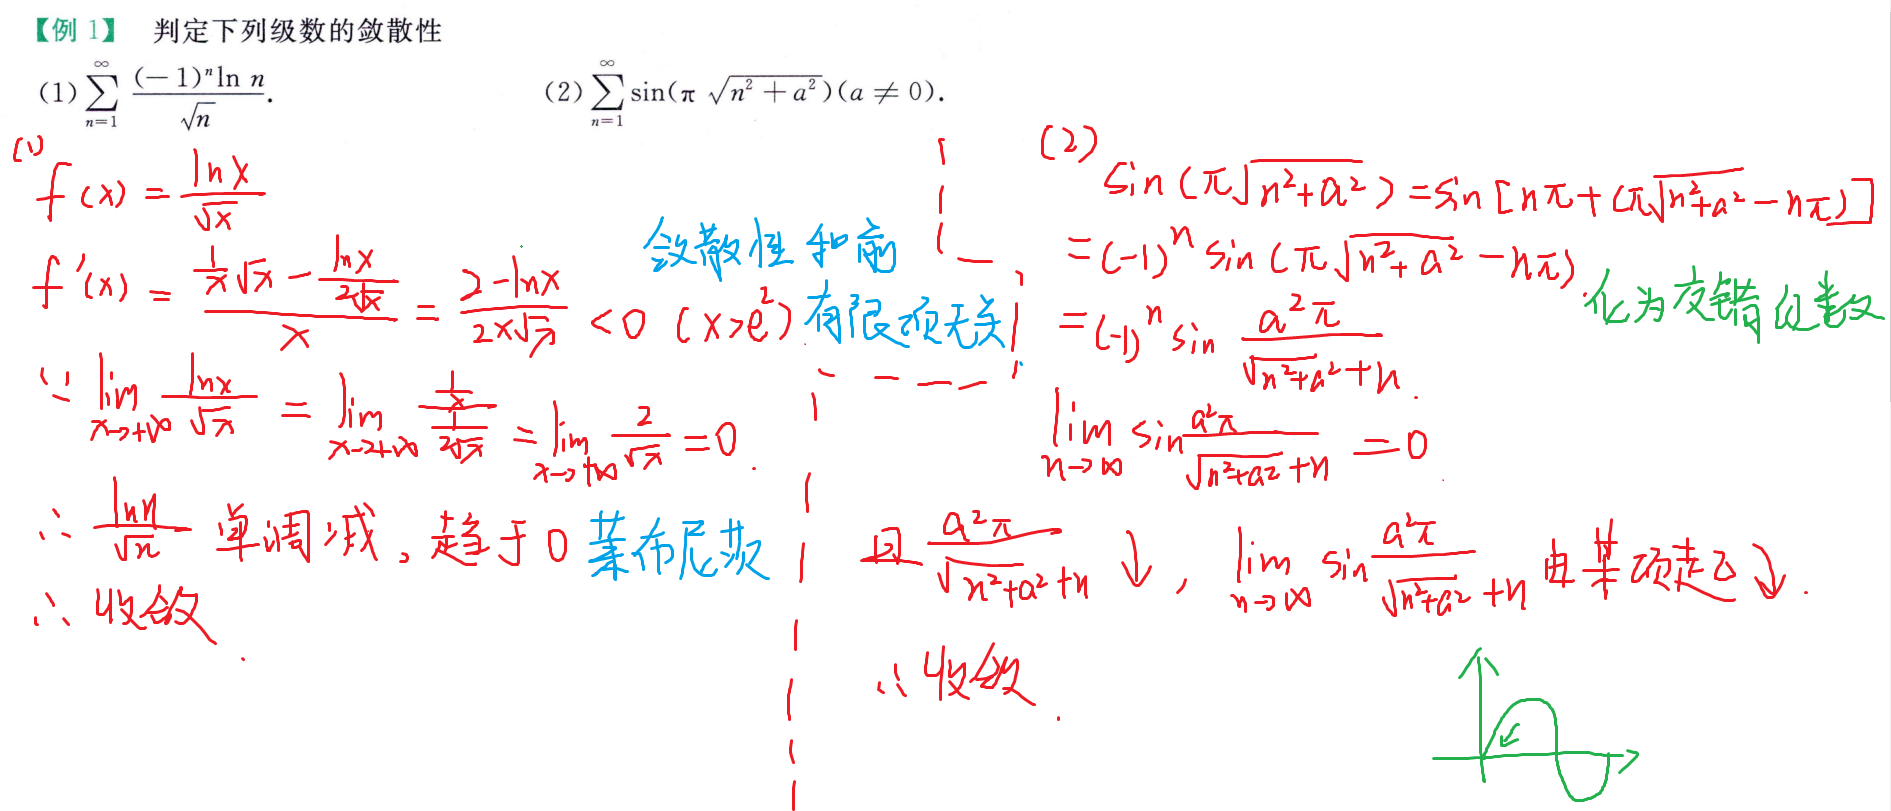 【例 1】 判定下列级数的敛散性
(1) $\sum_{n=1}^{\infty} \frac{(-1)^n \ln n}{\sqrt{n}}$.
(2) $\sum_{n=1}^{\infty} \sin(\pi \sqrt{n^2 + a^2})(a \neq 0)$.
(1)
$f(x) = \frac{\ln x}{\sqrt{x}}$
$f'(x) = \frac{\frac{1}{x}\sqrt{x} - \frac{\ln x}{2\sqrt{x}}}{x} = \frac{2-\ln x}{2x\sqrt{x}} < 0 \ (x > e^2)$
敛散性和前
有限项无关
$\because \lim_{x \to +\infty} \frac{\ln x}{\sqrt{x}} = \lim_{x \to +\infty} \frac{\frac{1}{x}}{\frac{1}{2\sqrt{x}}} = \lim_{x \to +\infty} \frac{2}{\sqrt{x}} = 0.$
$\therefore \frac{\ln n}{\sqrt{n}}$ 单调减, 趋于0 莱布尼茨
∴ 收敛.
(2)
$\sin(\pi\sqrt{n^2+a^2}) = \sin[n\pi + (\pi\sqrt{n^2+a^2} - n\pi)]$
$= (-1)^n \sin(\pi\sqrt{n^2+a^2} - n\pi).$
化为交错级数
$= (-1)^n \sin \frac{a^2\pi}{\sqrt{n^2+a^2}+n}.$
$\lim_{n \to \infty} \sin \frac{a^2\pi}{\sqrt{n^2+a^2}+n} = 0.$
因 $\frac{a^2\pi}{\sqrt{n^2+a^2}+n} \downarrow$, $\lim_{n \to \infty} \sin \frac{a^2\pi}{\sqrt{n^2+a^2}+n}$ 由某项起↓.
∴ 收敛.